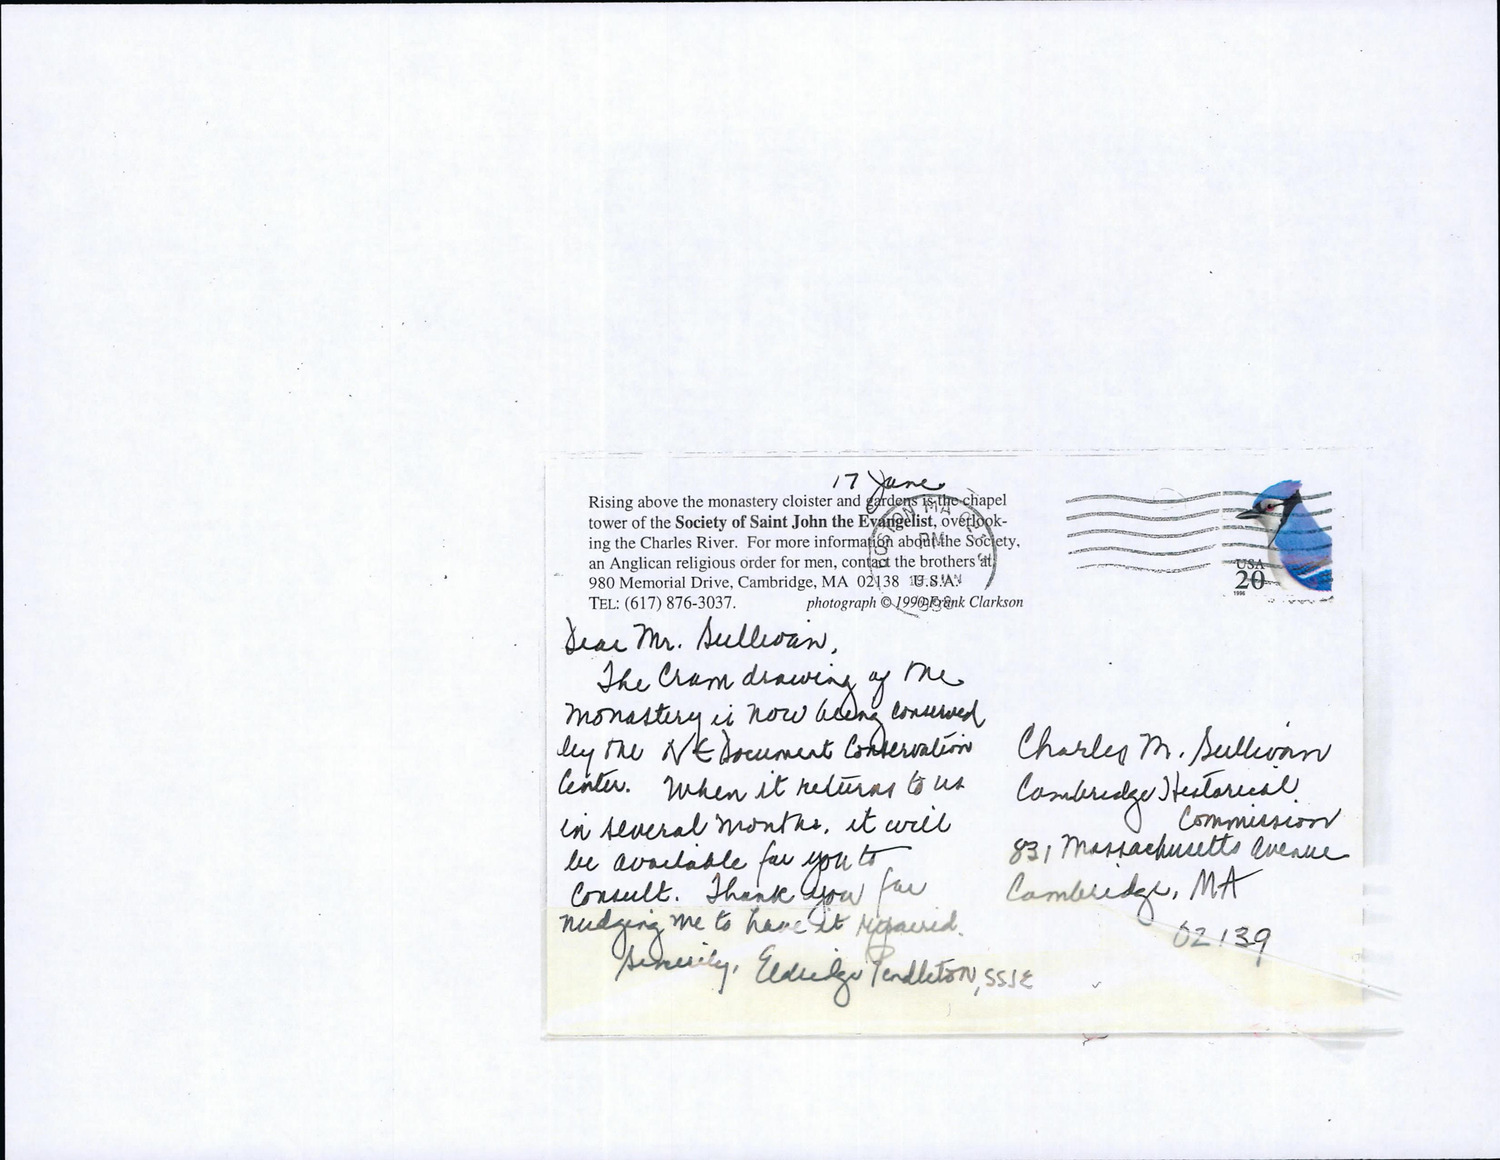 17 June
Rising above the monastery cloister and gardens is the chapel
tower of the Society of Saint John the Evangelist, overlook-
ing the Charles River. For more information about the Society,
an Anglican religious order for men, contact the brothers at
980 Memorial Drive, Cambridge, MA 02138 U.S.A.
TEL: (617) 876-3037.
photograph © 1990 Frank Clarkson
BOSTON MA
PM
1998
USA
20
1996
Dear Mr. Sullivan,
The Cram drawing of the
monastery is now being conserved
by the NE Document Conservation
Center. When it returns to us
in several months, it will
be available for you to
consult. Thank you for
nudging me to have it repaired.
Sincerely, Eldridge Pendleton, SSJE
Charles M. Sullivan
Cambridge Historical
Commission
831 Massachusetts Avenue
Cambridge, MA
02139